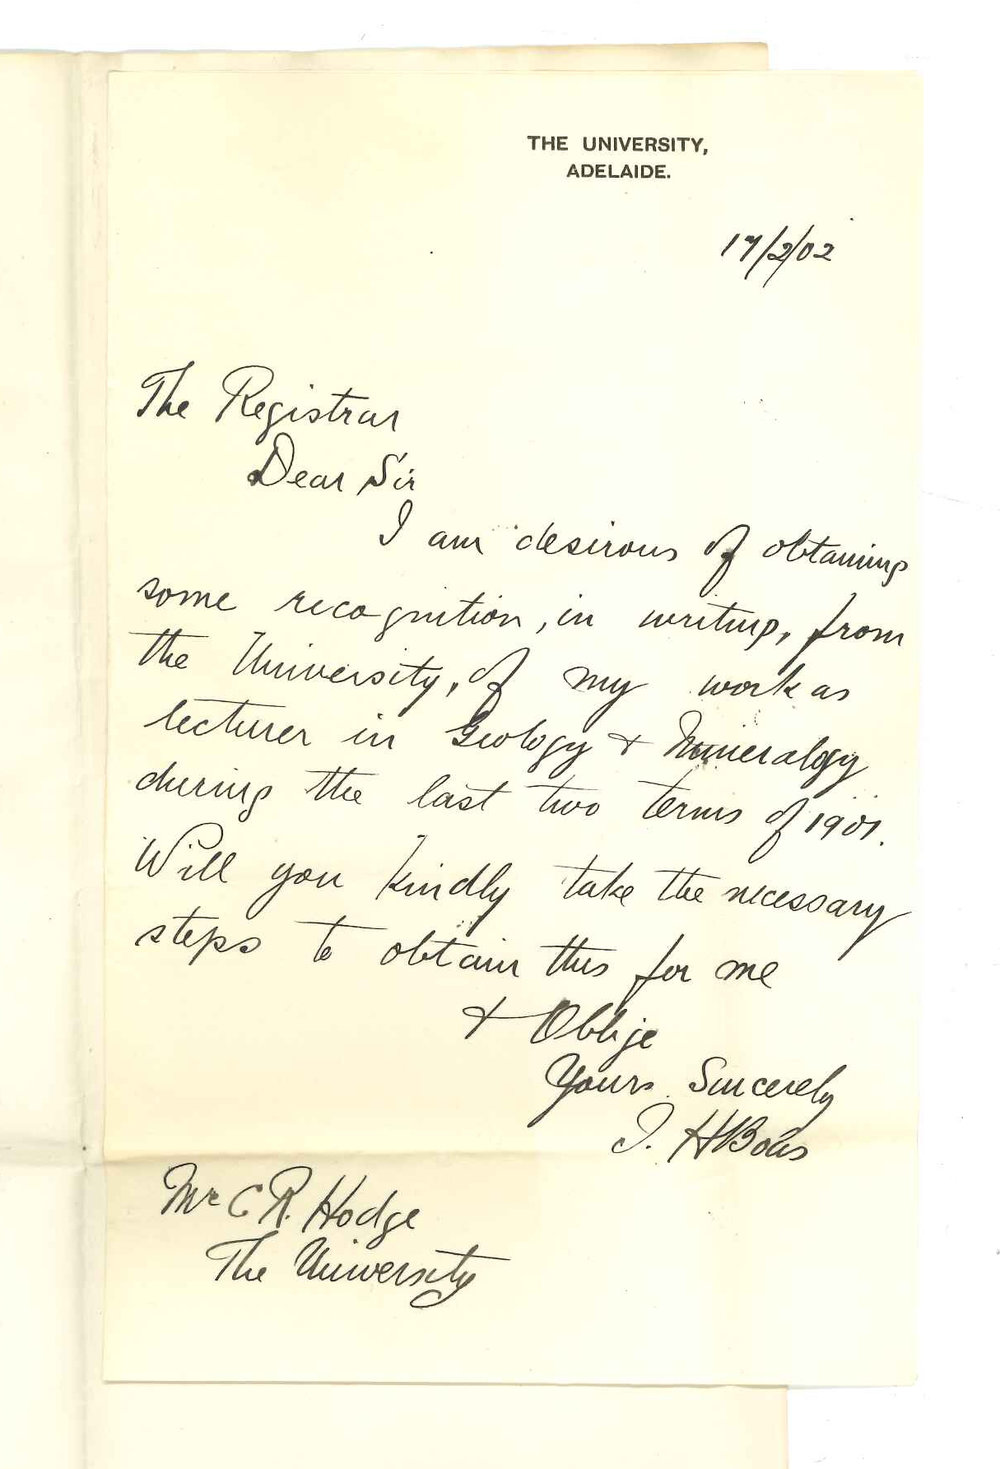 THE UNIVERSITY,
ADELAIDE.
17/2/02
The Registrar
Dear Sir
I am desirous of obtaining
some recognition, in writing, from
the University, of my work as
lecturer in Geology & Mineralgy
during the last two terms of 1901.
Will you kindly take the necessary
steps to obtain this for me
& Oblige
Yours Sincerely
I. H Boas
Mr C R. Hodge
The University